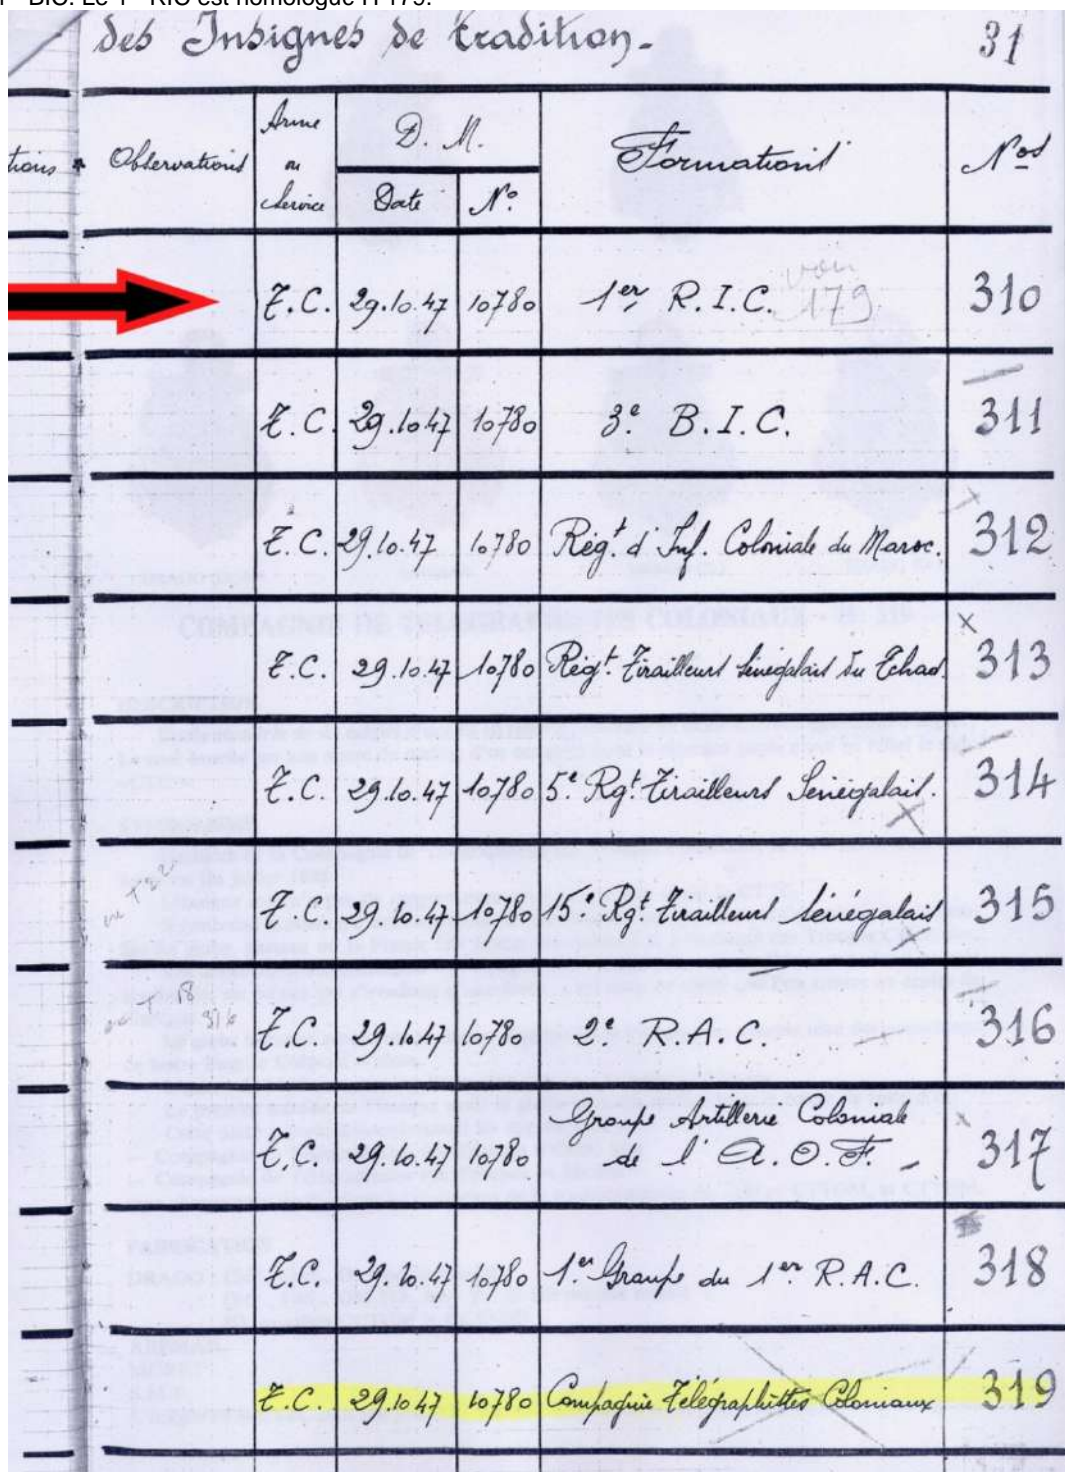 BIC. Le 1 RIC est homologué H 179.
des Insignes de tradition- 31
tions Observations Arme ou Service D. M. Date N° Formations Nos
T.C. 29.10.47 10780 1er R.I.C. voir 179 310
T.C. 29.10.47 10780 3e B.I.C. 311
T.C. 29.10.47 10780 Régt d'Inf. Coloniale du Maroc. 312
T.C. 29.10.47 10780 Régt. Tirailleurs Sénégalais du Tchad. 313
T.C. 29.10.47 10780 5e Rgt Tirailleurs Sénégalais. 314
T.C. 29.10.47 10780 15e Rgt Tirailleurs Sénégalais 315
T.C. 29.10.47 10780 2e R.A.C. 316
T.C. 29.10.47 10780 Groupe Artillerie Coloniale
de l'A.O.F. - 317
T.C. 29.10.47 10780 1er Groupe du 1er R.A.C. 318
T.C. 29.10.47 10780 Compagnie Télégraphistes Coloniaux 319